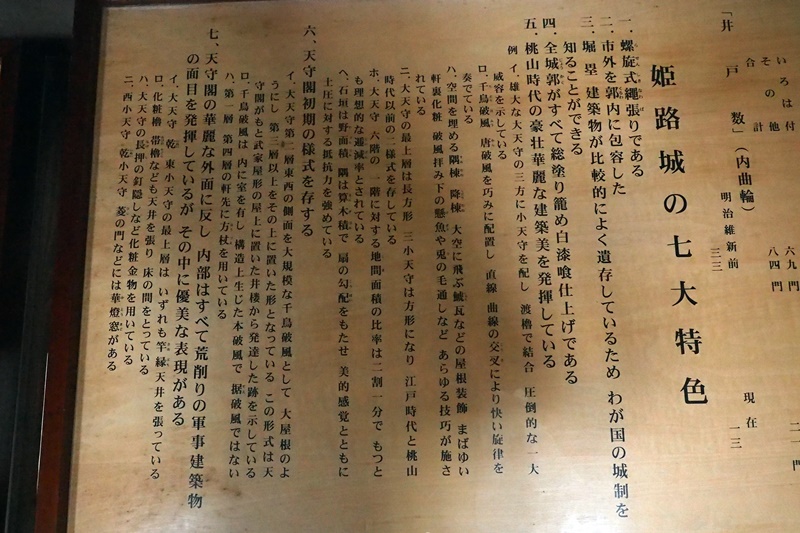 いろは付
六九門
二一門
その他
八四門
合計
「井戸数」（内曲輪）
明治維新前
三三
現在
一三
姫路城の七大特色
一．螺旋式縄張りである
二．市外を郭内に包容した
三．堀 塁 建築物が比較的によく遺存しているため わが国の城制を
知ることができる
四．全城郭がすべて総塗り籠め白漆喰仕上げである
五．桃山時代の豪壮華麗な建築美を発揮している
例 イ．雄大な大天守の三方に小天守を配し 渡櫓で結合 圧倒的な一大
威容を示している
ロ．千鳥破風 唐破風を巧みに配置し 直線 曲線の交叉により快い旋律を
奏でている
ハ．空間を埋める隅棟 降棟 大空に飛ぶ鯱瓦などの屋根装飾 まばゆい
軒裏化粧 破風拝み下の懸魚や兎の毛通しなど あらゆる技巧が施さ
れている
ニ．大天守の最上層は長方形 三小天守は方形になり 江戸時代と桃山
時代以前の二様式を存している
ホ．大天守 六階の 一階に対する地間面積の比率は二割一分で もっと
も理想的な逓減率とされている
ヘ．石垣は野面積 隅は算木積で 扇の勾配をもたせ 美的感覚とともに
土圧に対する抵抗力を強めている
六．天守閣初期の様式を存する
イ．大天守第二層東西の側面を大規模な千鳥破風として 大屋根のよ
うにし 第三層以上をその上に置いた形となっている この形式は天
守閣がもと武家屋形の屋上に置いた井楼から発達した跡を示している
ロ．千鳥破風は 内に室を有し 構造上生じた本破風で 据破風ではない
ハ．第一層 第四層の軒先に方杖を用いている
七．天守閣の華麗な外面に反し 内部はすべて荒削りの軍事建築物
の面目を発揮しているが その中に優美な表現がある
イ．大天守 乾 東小天守の最上層は いずれも竿縁天井を張っている
ロ．化粧櫓 帯櫓なども天井を張り 床の間をとっている
ハ．大天守の長押の釘隠しなど化粧金物を用いている
ニ．西小天守 乾小天守 菱の門などには華燈窓がある